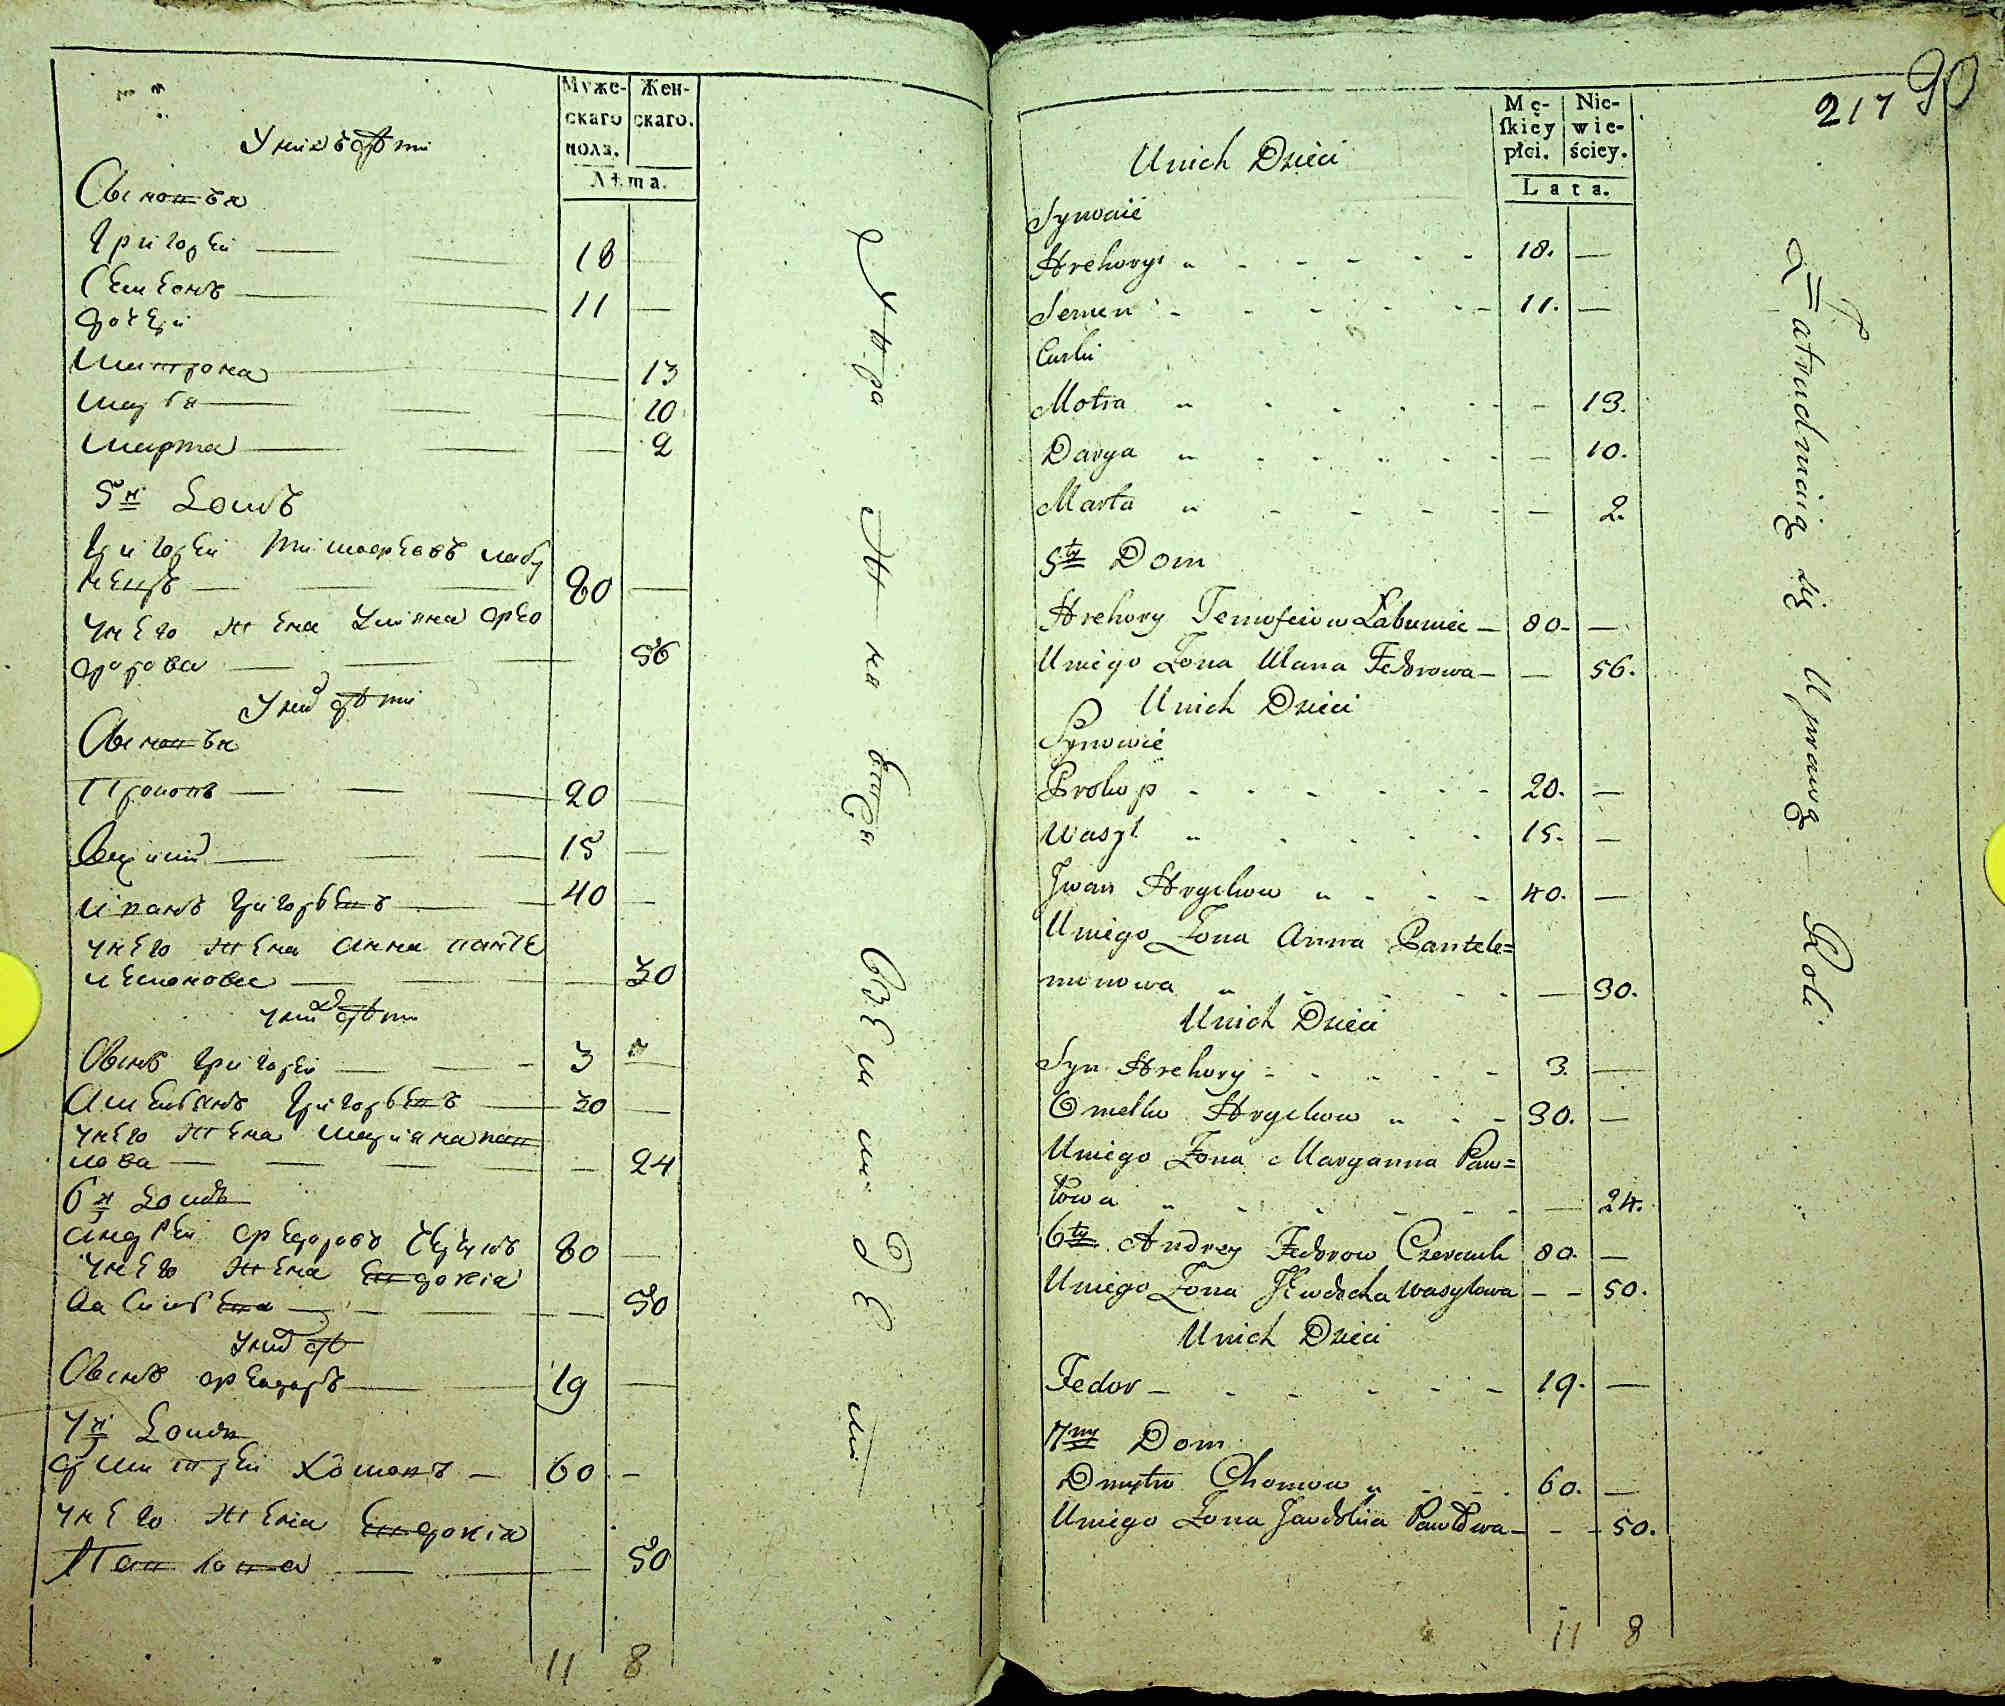 Муже-
скаго
пола.
Жен-
скаго.
Лѣта.
Унихъ дѣти
Сыновья
Григорей — 18 —
Семенъ — 11 —
дочери
Мотрона — 13
Марья — 10
Марта — 2
5й Домъ
Григорей Тимофеевъ Лабу
нецъ — 80 —
Унего жена Улияна Фео
дорова — 56
Уних дѣти
Сыновья
Прокопъ — 20 —
Василий — 15 —
Иванъ Григорьевъ — 40 —
Унего жена Анна Панте
леимонова — 30
Уних дѣти
Сынъ Григорей — 3 —
Омельянъ Григорьевъ — 30 —
Унего жена Марияна Пав
лова — 24
6й Домъ
Андрей Федоровъ 80 —
Унего жена Евдокия
Васильева — 50
Уних дѣ
Сынъ Федоръ — 19 —
7й Домъ
Дмитрей Хомовъ — 60 —
Унего жена Евдокия
Павлова — 50
11 8
земли
217 90
Mę-
skiéy
płci.
Nie-
wie-
ściey.
Lata.
Unich Dzieci
Synowie
Hrehory 18. —
Semen 11. —
Curki
Motra — 13.
Darya — 10.
Marta — 2.
5ty Dom
Hrehory Temofeiow Łabuniec — 80. —
Uniego Żona Ulana Fedorowa — — 56.
Unich Dzieci
Synowie
Prokop 20. —
Wasyl 15. —
Iwan Hryckow 40. —
Uniego Żona Anna Pantele=
monowa — 30.
Unich Dzieci
Syn Hrehory 3. —
Omelko Hryckow 30. —
Uniego Żona Maryanna Paw=
łowa — 24.
6ty Andrey Fedorow 80. —
Uniego Żona Jewdocha Wasylowa — — 50.
Unich Dzieci
Fedor — 19. —
7my Dom
Dmytro Chomow 60. —
Uniego Żona Jawdokia Pawłowa — — 50.
11 8
Zatrudniaią się Uprawą Roli